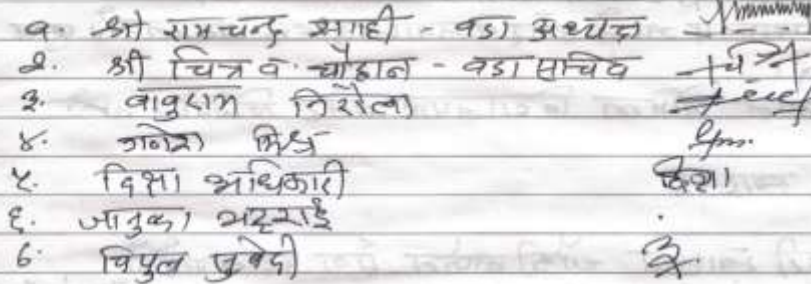 १. श्री रामचन्द्र शाही - वडा अध्यक्ष
२. श्री चित्र व. चौहान - वडा सचिव
३. बाबुराम निरौला
४. गनेश मिश्र
५. दिक्षा अधिकारी दिक्षा
६. जानुका भट्टराई
७. विपुल सुवेदी